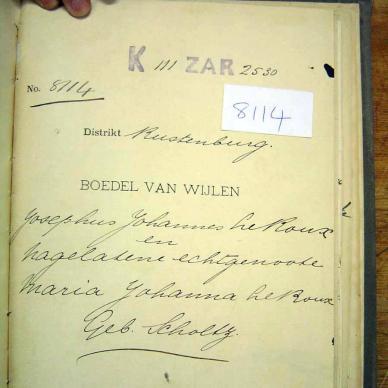 K III ZAR 2530
No. 8114
8114
Distrikt Rustenburg.
BOEDEL VAN WIJLEN
Josephus Johannes le Roux
en
nagelatene echtgenoote
Maria Johanna le Roux
Geb. Scholtz.